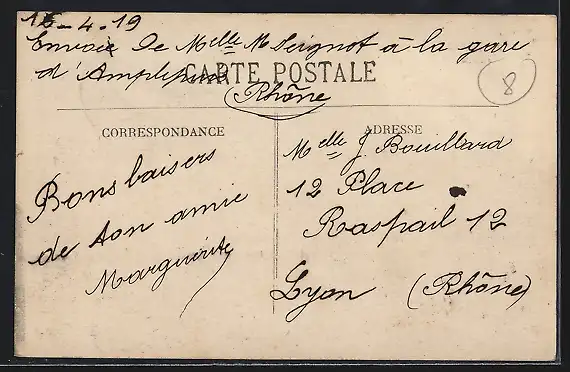 16-4.19
Envoie De Melle M Seignot à la gare
d'Amplepuis
CARTE POSTALE
(Rhône
8
CORRESPONDANCE
Bons baisers
de ton amie
Marguerite
ADRESSE
Melle J. Bouillard
12 Place
Raspail 12
Lyon (Rhône)